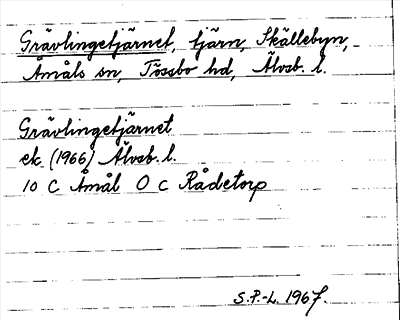 Grävlingetjärnet, tjärn, Skällebyn,
Åmåls sn, Tössbo hd, Älvsb. l.
Grävlingetjärnet
ek. (1966) Älvsb. l.
10 C Åmål O c Rådetorp
S.P.-L. 1967.